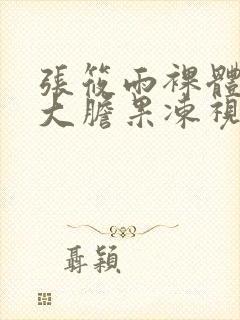 張筱雨裸體
大膽果凍視
聶穎